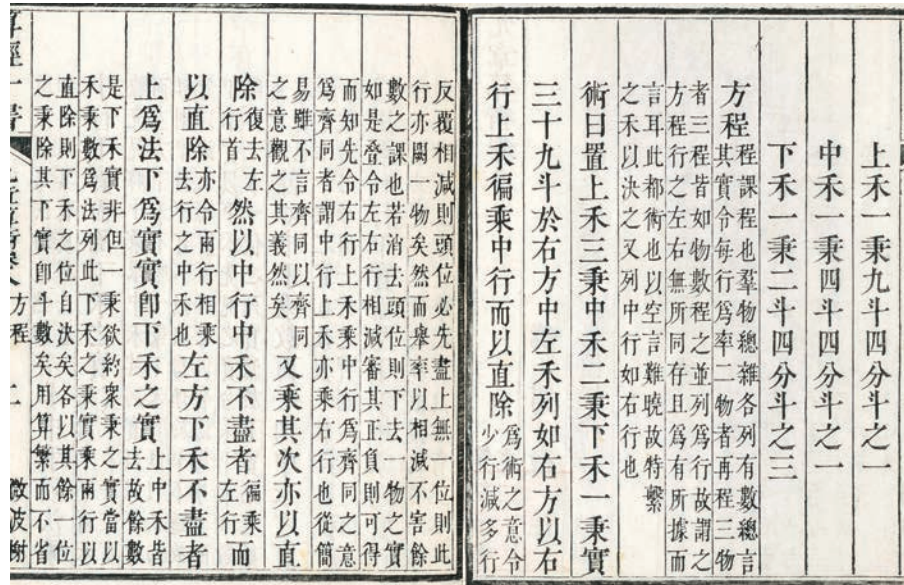 上禾一秉九斗四分斗之一
中禾一秉四斗四分斗之一
下禾一秉二斗四分斗之三
方程程課程也羣物總雜各列有數總言
其實令每行爲率二物者再程三物
者三程皆如物數程之並列爲行故謂之
方程行之左右無所同存且爲有所據而
言耳此都術也以空言難曉故特繫
之禾以決之又列中行如右行也
術曰置上禾三秉中禾二秉下禾一秉實
三十九斗於右方中左禾列如右方以右
行上禾徧乘中行而以直除爲術之意令少行減多行
反覆相減則頭位必先盡上無一位則此
行亦闕一物矣然而舉率以相減不害餘
數之課也若消去頭位則下去一物之實
如是疊令左右行相減審其正負則可得
而知先令右行上禾乘中行爲齊同之意
爲齊同者謂中行上禾亦乘右行也從簡
易雖不言齊同以齊同之意觀之其義然矣又乘其次亦以直
除復去左行首然以中行中禾不盡者徧乘左行而
以直除亦令兩行相乘去行之中禾也左方下禾不盡者
上爲法下爲實實即下禾之實上中禾皆去故餘數
是下禾實非但一秉欲約衆秉之實當以
禾秉數爲法列此下禾之秉實乘兩行以
直除則下禾之位自決矣各以其餘一位
之秉除其下實即斗數矣用算繁而不省
方程
二
微波榭